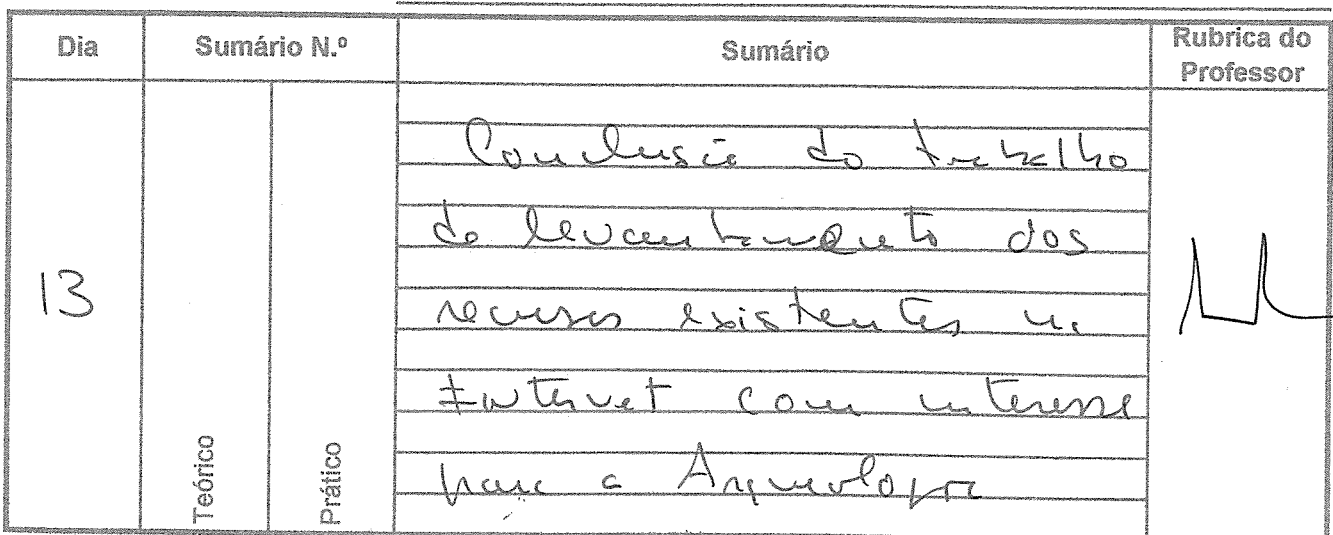 Dia Sumário N.º Sumário Rubrica do Professor
Teórico Prático
13
Conclusão do trabalho
de levantamento dos
recursos existentes na
Internet com interesse
para a Arqueologia